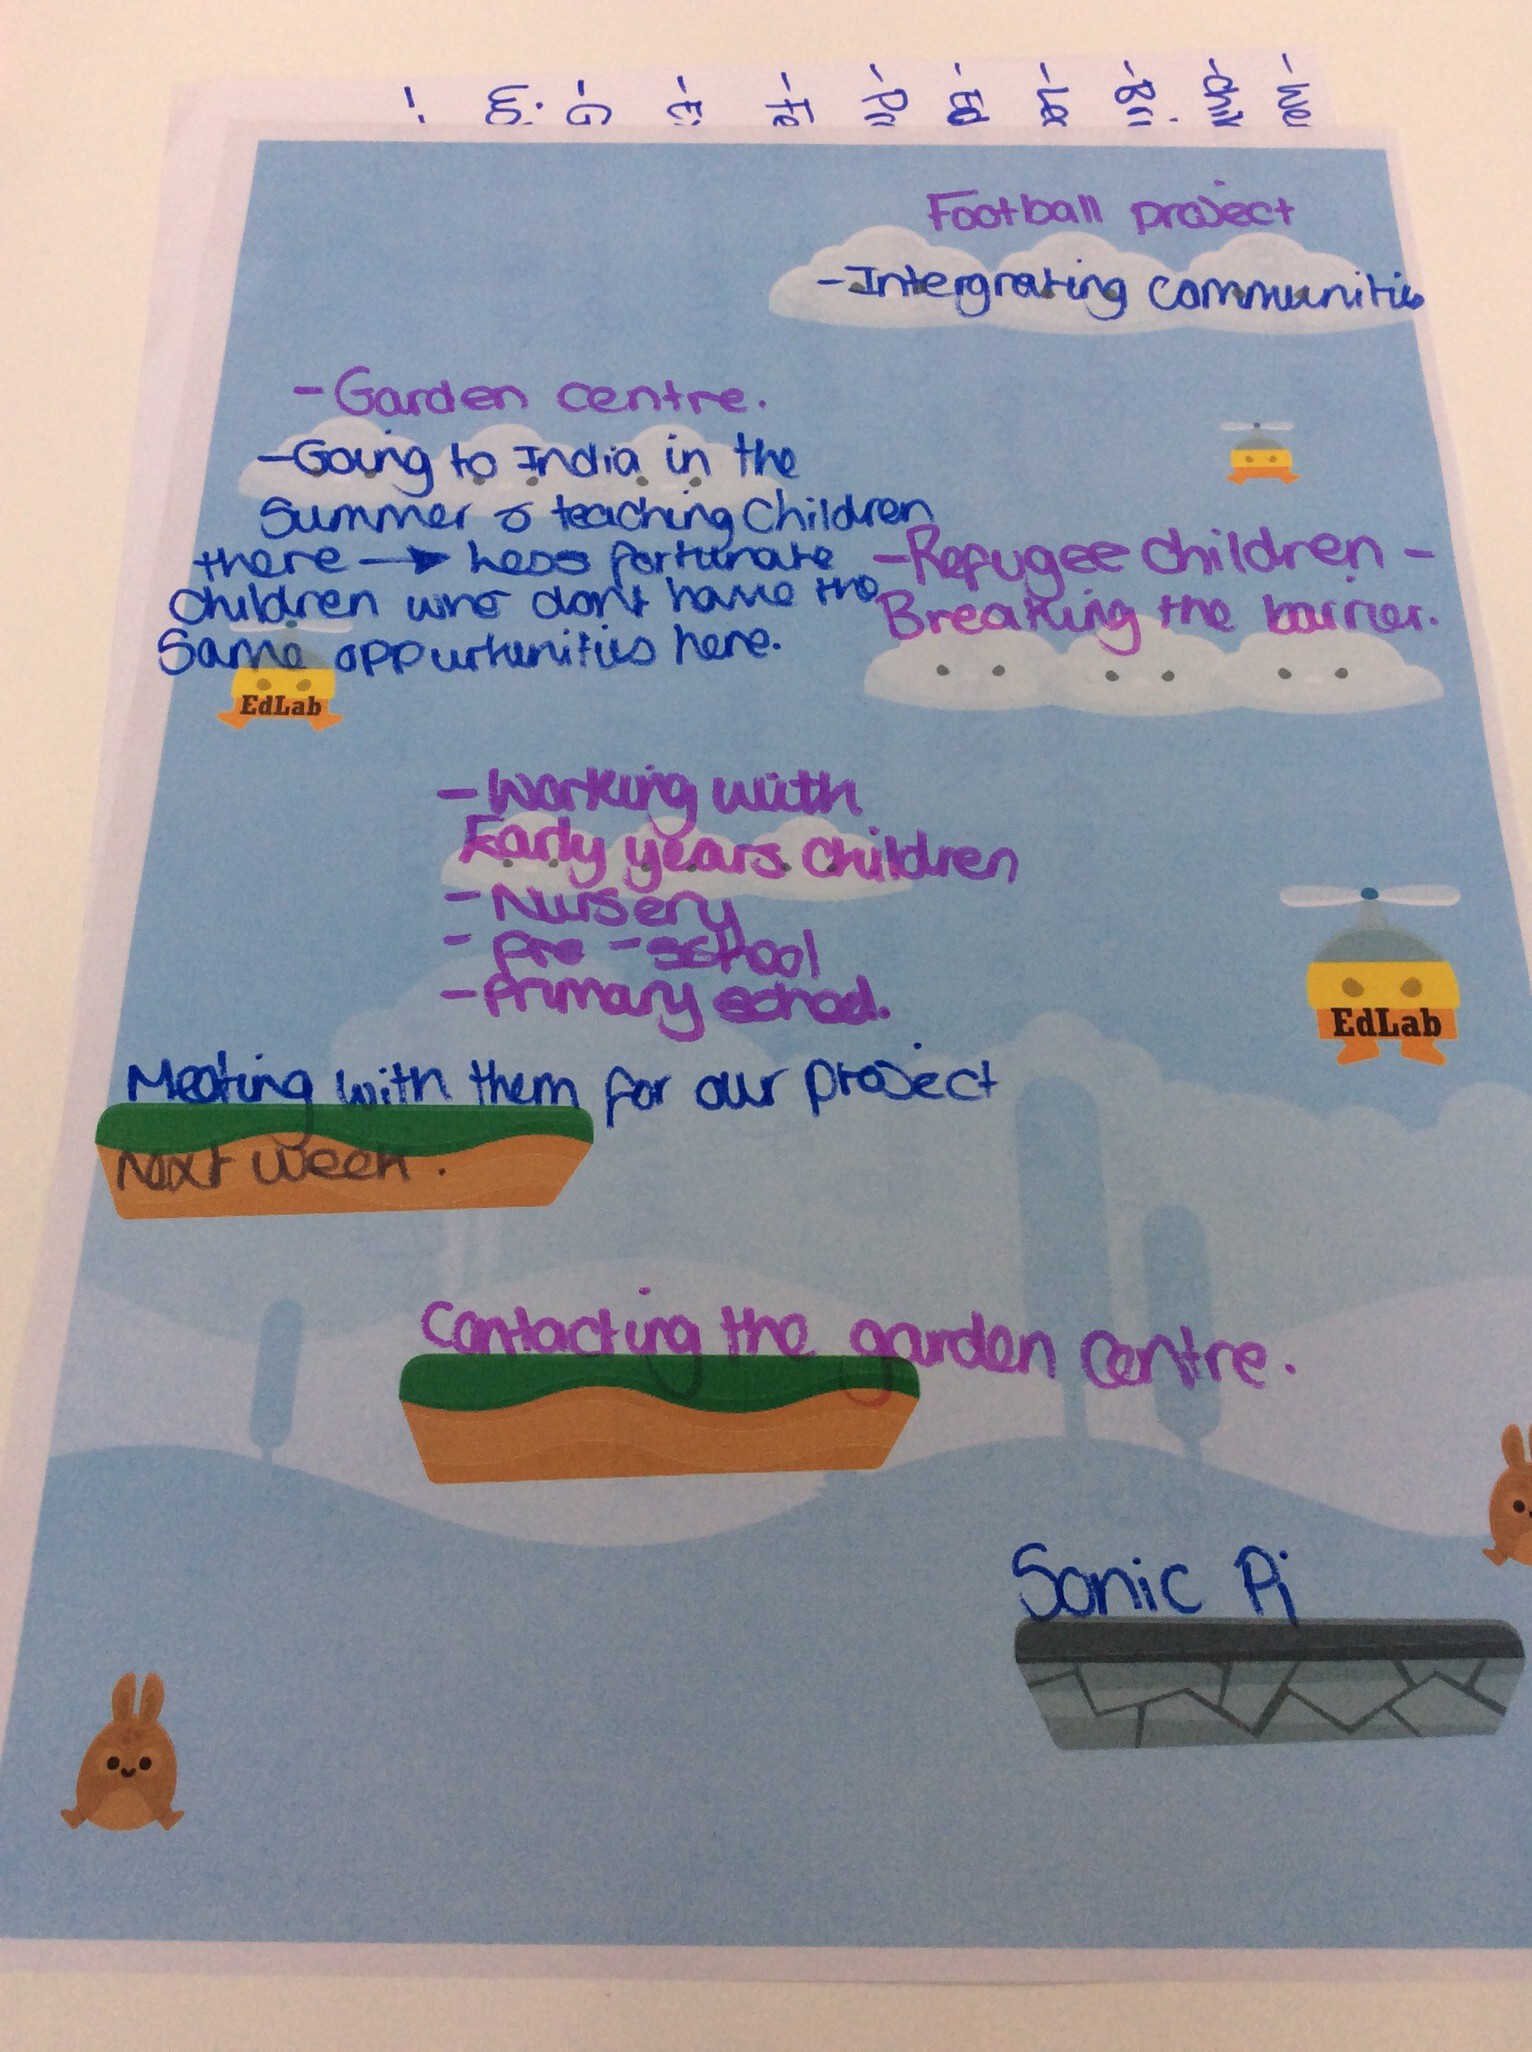 Football project
- Intergrating communities
- Garden centre.
- Going to India in the
Summer & teaching Children
there → Less fortunate
children who don't have the
Same oppurtunities here.
- Refugee children -
Breaking the barrier.
EdLab
- Working with
Early years children
- Nursery
- Pre-school
- Primary school.
EdLab
Meating with them for our project
next week.
Contacting the garden centre.
Sonic Pi